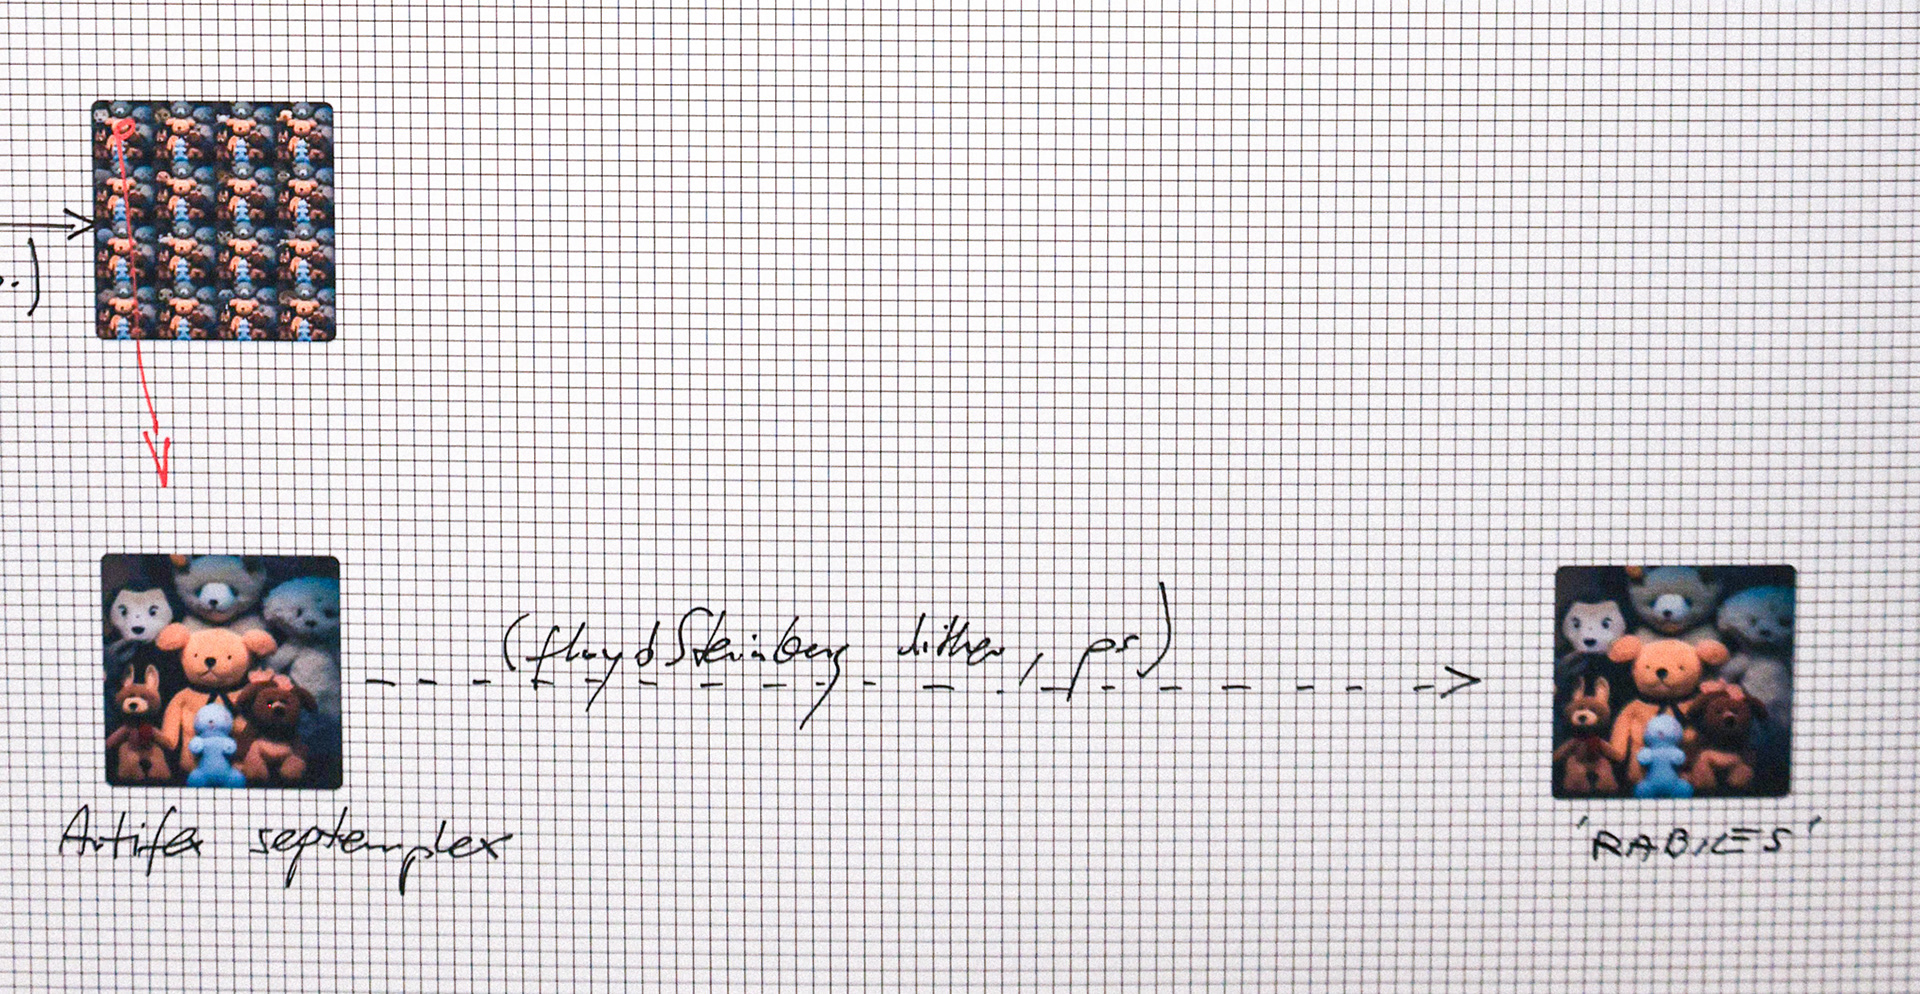 .)
(floyd Steinberg dither, ps)
Artifex septemplex
'RABIES'